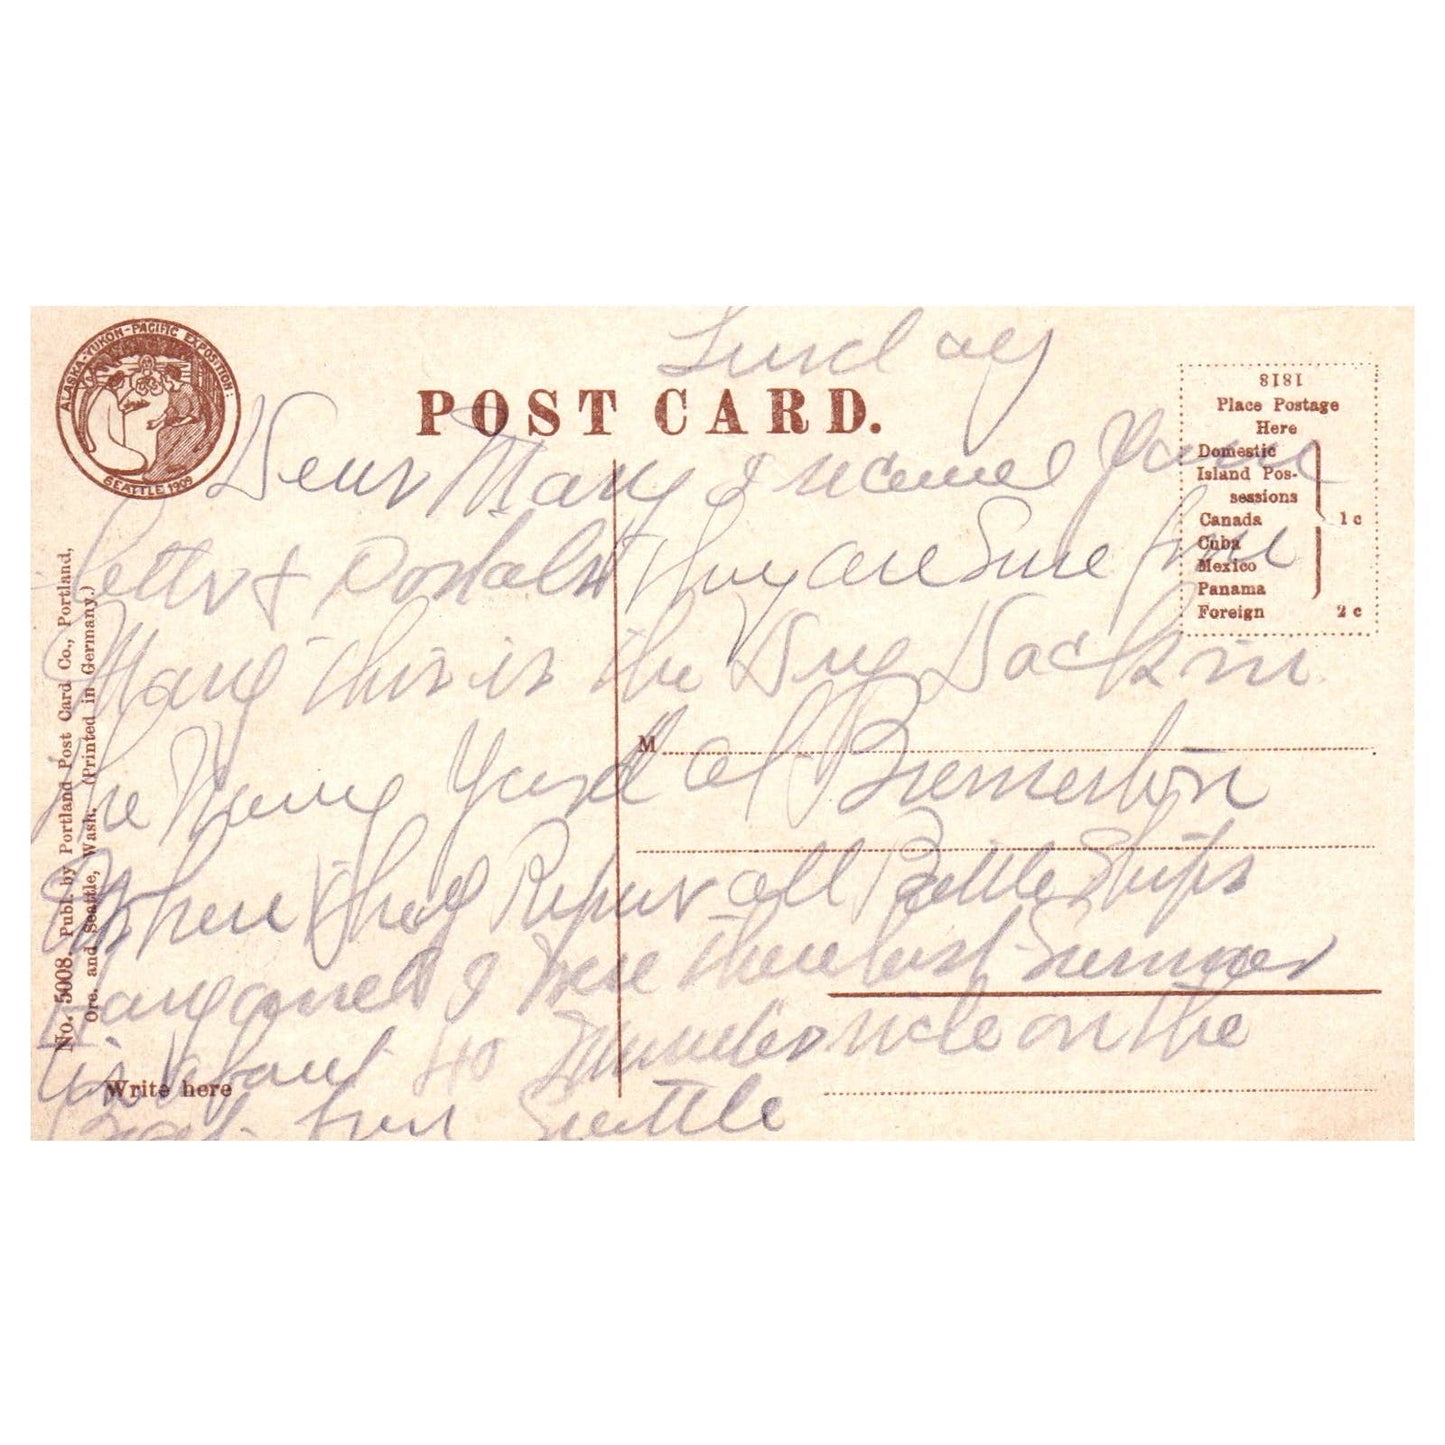 ALASKA-YUKON-PACIFIC EXPOSITION:
SEATTLE 1909
POST CARD.
1818
Place Postage
Here
Domestic
Island Pos-
sessions
Canada
Cuba
Mexico
Panama
Foreign
1 c
2 c
No. 5008. Publ. by Portland Post Card Co., Portland,
Ore. and Seattle, Wash. (Printed in Germany.)
M
Write here
Sunday
Dear Mary I received your
letter & Donalds they are Sure fine
Mary this is the Dry Dock in
the Navy Yard at Bremerton
Where they Repair all Battle Ships
Margaret & I were there last Summer
is about 40 minutes ride on the
Boat from Seattle